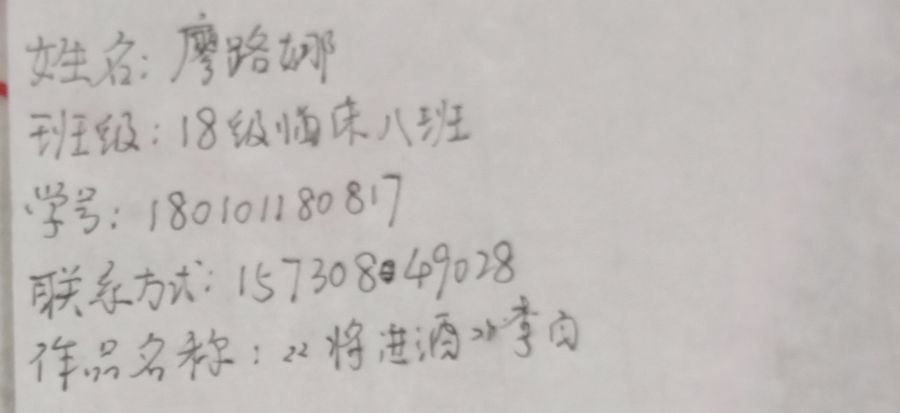 姓名：廖路娜
班级：18级临床八班
学号：180101180817
联系方式：15730849028
作品名称：《将进酒》李白